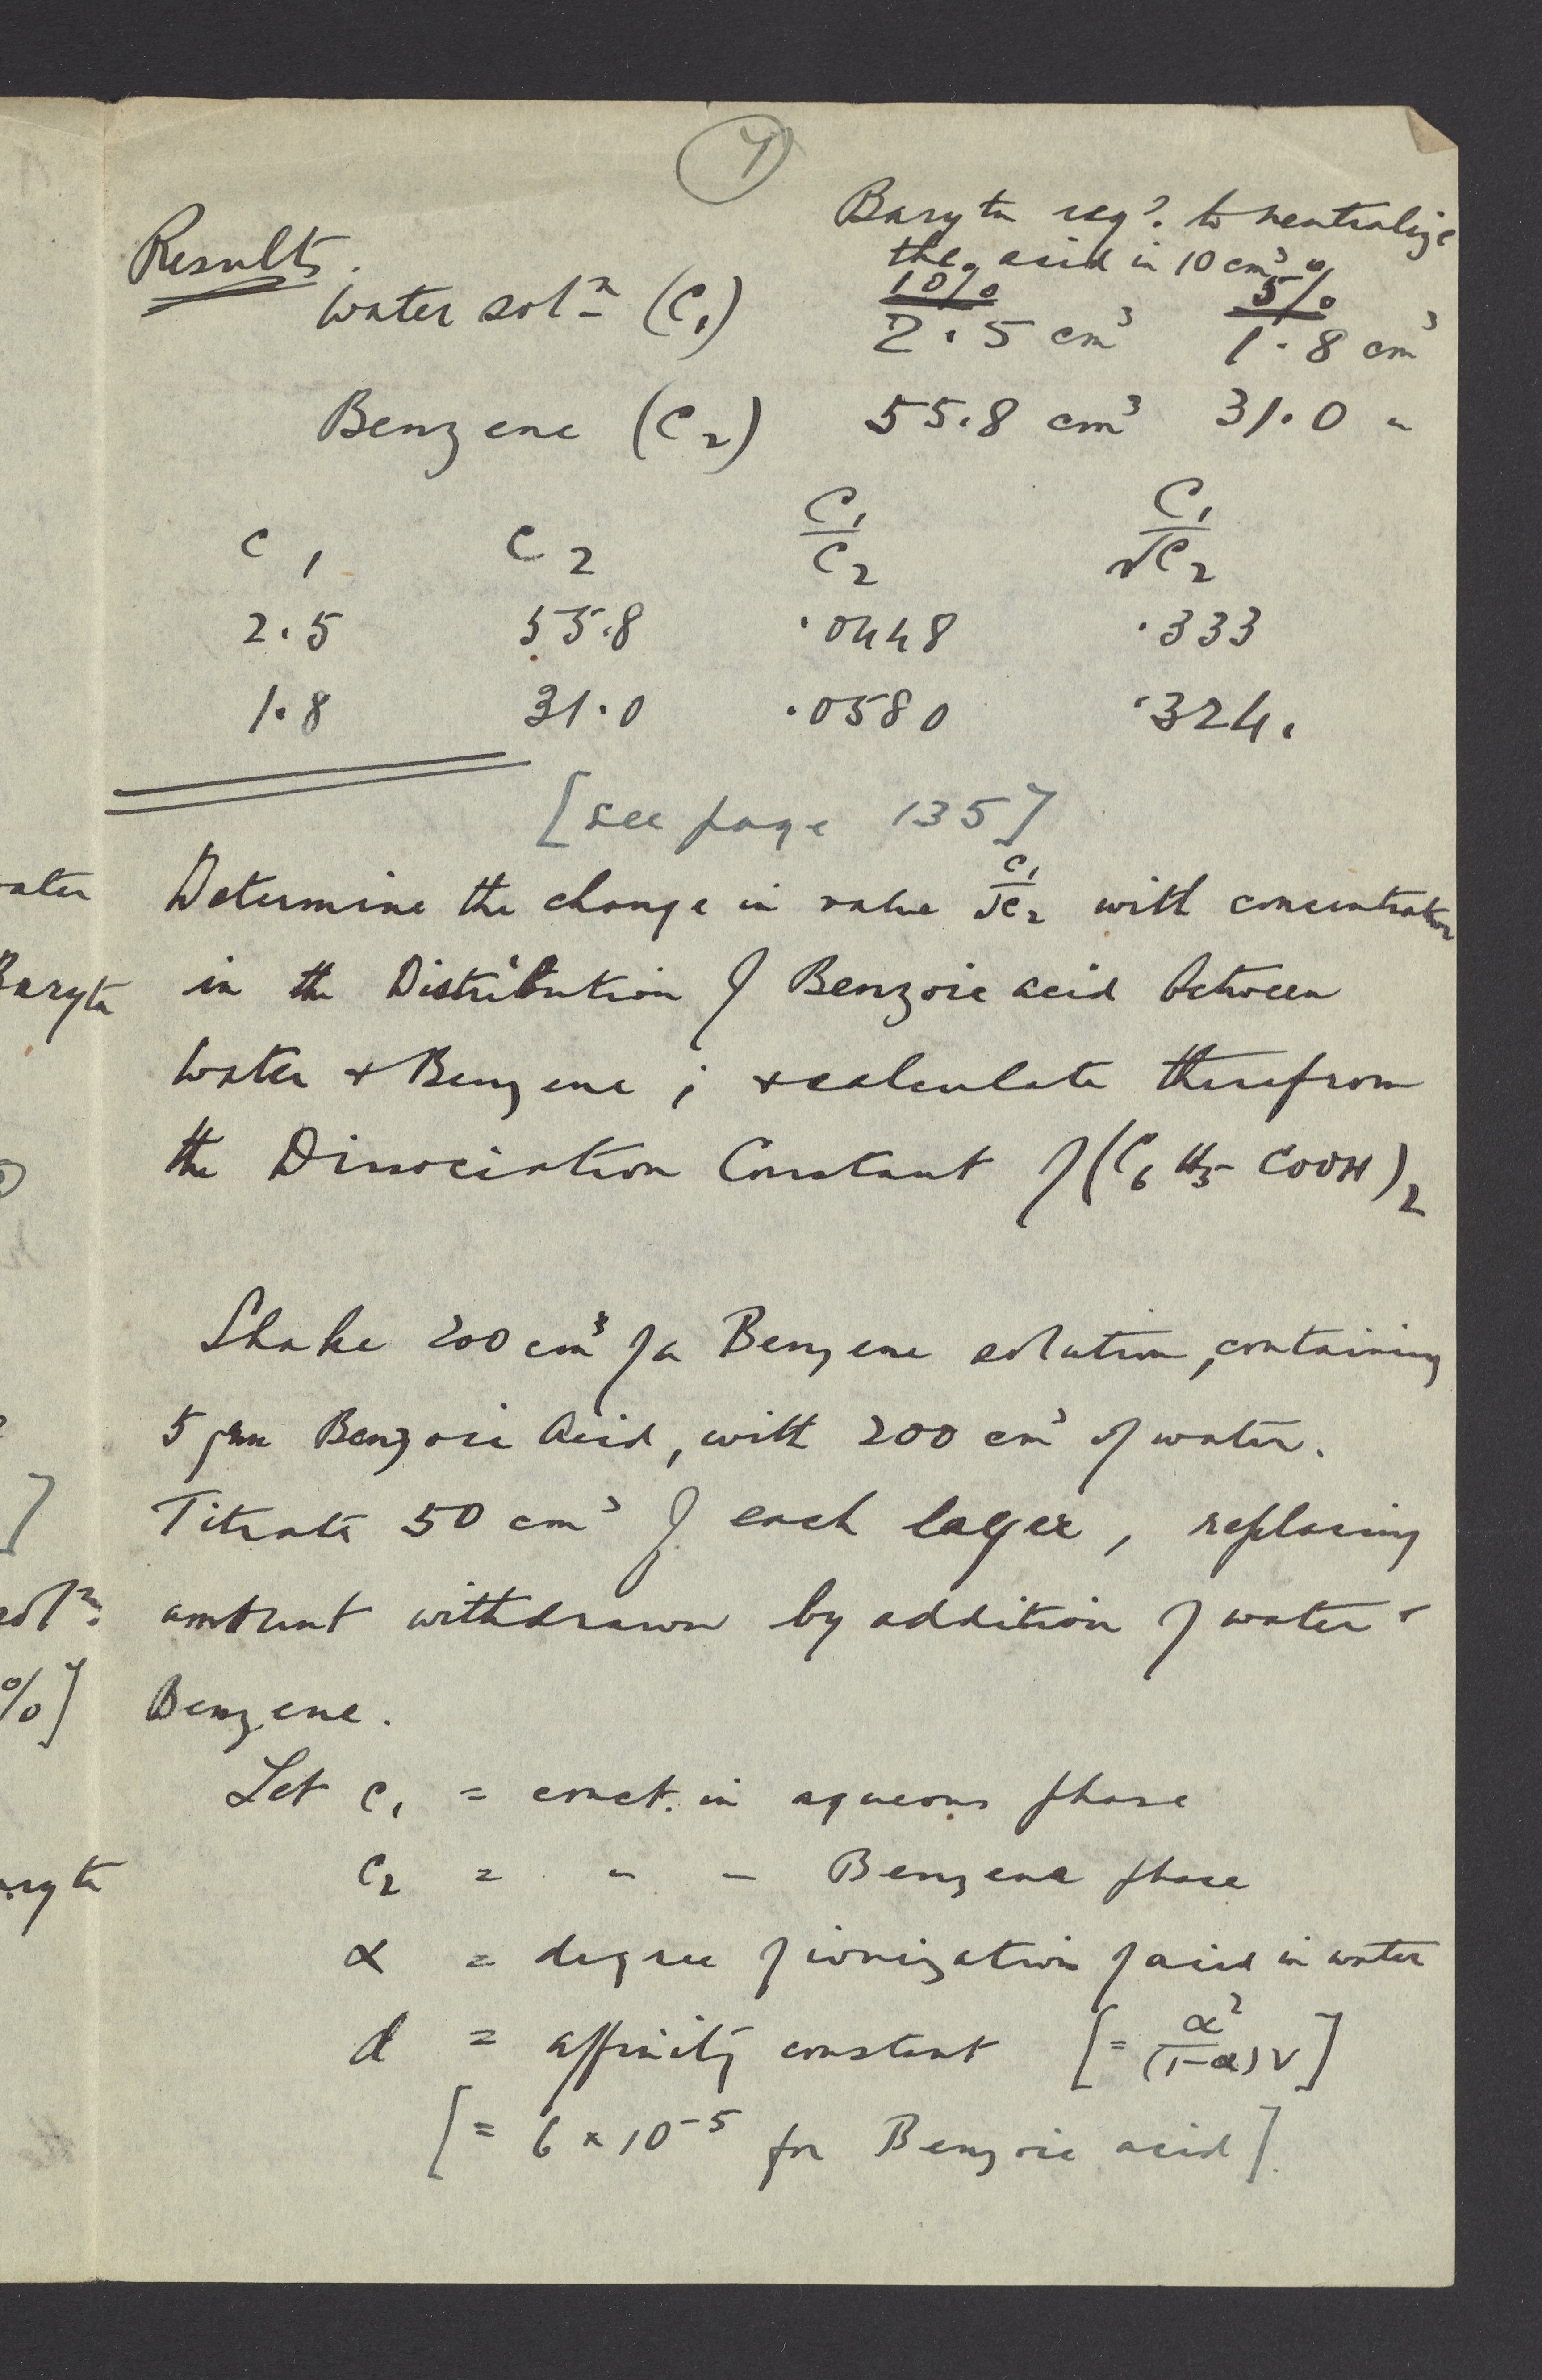 7
Baryta reqd. to neutralize
the acid in 10 cm³
Results.
10% 5%
Water soln (C1) 2.5 cm³ 1.8 cm³
Benzene (C2) 55.8 cm³ 31.0 "
C1 C2 C1/C2 C1/√C2
2.5 55.8 .0448 .333
1.8 31.0 .0580 .324.
[see page 135]
Determine the change in value C1/√C2 with concentration
in the Distribution of Benzoic acid between
Water & Benzene ; & calculate therefrom
the Dissociation Constant of (C6H5COOH)2
Shake 200 cm³ of a Benzene solution, containing
5 grm Benzoic Acid, with 200 cm³ of water.
Titrate 50 cm³ of each layer, replacing
amount withdrawn by addition of water &
Benzene.
Let c1 = conct. in aqueous phase
c2 = " " Benzene phase
α = degree of ionization of acid in water
d = affinity constant [= α²/(1-α)V]
[= 6 × 10⁻⁵ for Benzoic acid].
ater
Baryta
]
soln.
%]